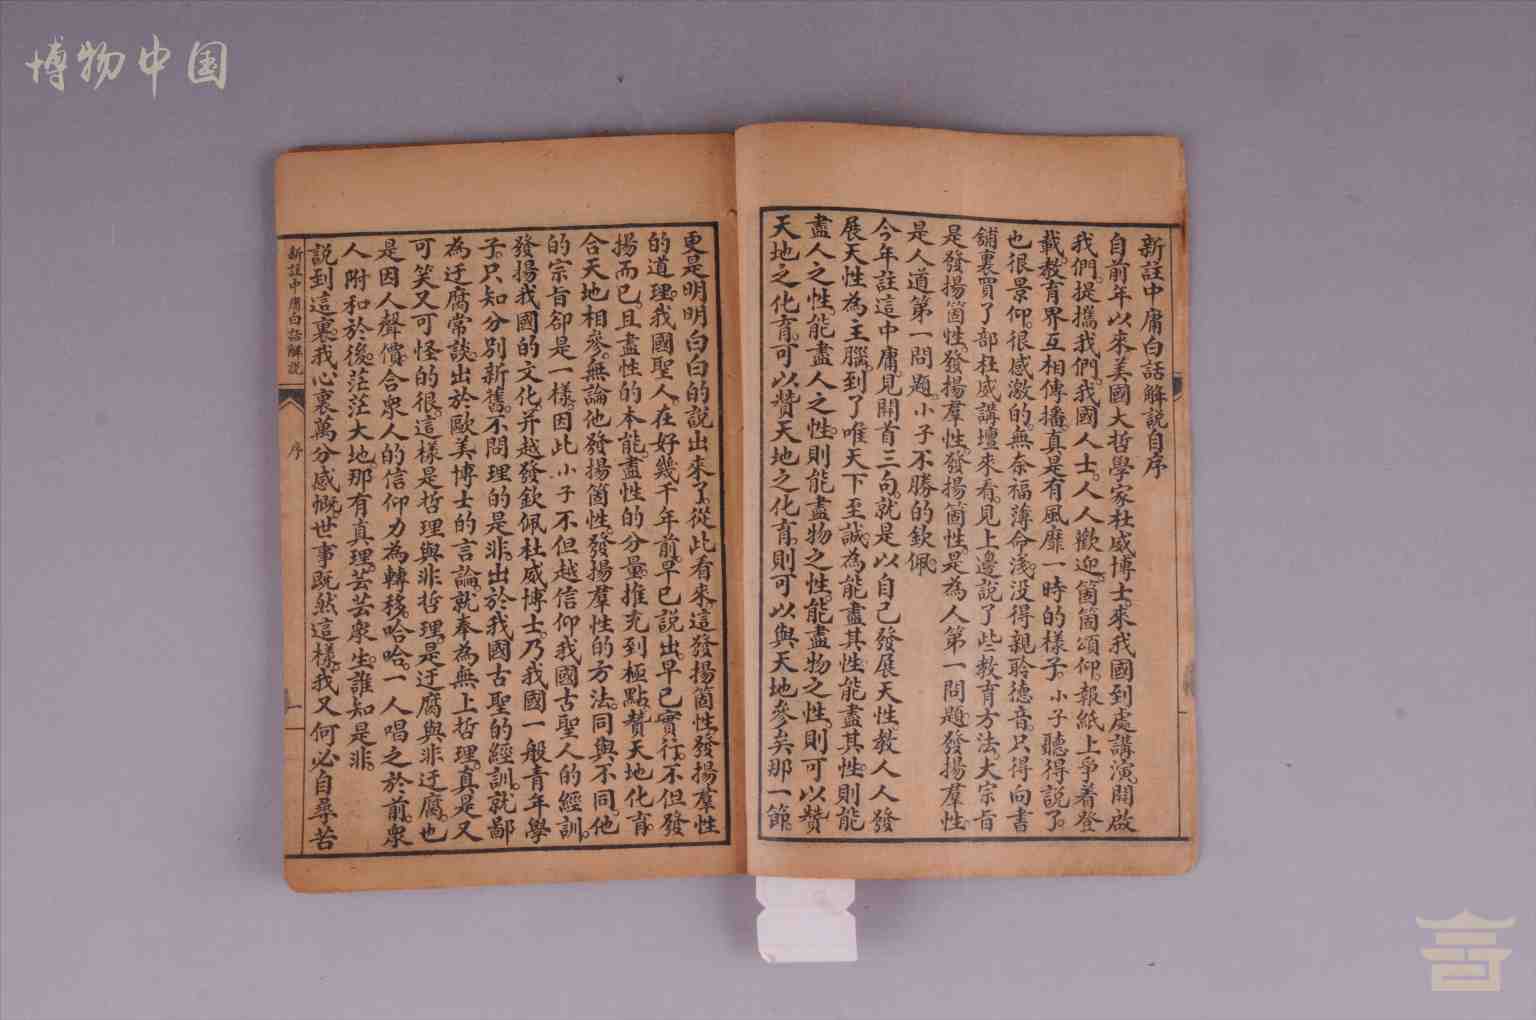 博物中国
新註中庸白話解說自序
自前年以來美國大哲學家杜威博士來我國到處講演開啟
我們提攜我們我國人士人人歡迎箇箇頌仰報紙上爭着登
載教育界互相傳播真是有風靡一時的樣子小子聽得說了
也很景仰很感激的無奈福薄命淺没得親聆德音只得向書
舖裏買了部杜威講壇來看見上邊說了些教育方法大宗旨
是發揚箇性發揚羣性發揚箇性是為人第一問題發揚羣性
是人道第一問題小子不勝的欽佩
今年註這中庸見開首三句就是以自己發展天性教人人發
展天性為主腦到了唯天下至誠為能盡其性能盡其性則能
盡人之性能盡人之性則能盡物之性能盡物之性則可以贊
天地之化育可以贊天地之化育則可以與天地參矣那一節
更是明明白白的說出來了從此看來這發揚箇性發揚羣性
的道理我國聖人在好幾千年前早已說出早已實行不但發
揚而已且盡性的本能盡性的分量推充到極點贊天地化育
合天地相參無論他發揚箇性發揚羣性的方法同與不同他
的宗旨卻是一樣因此小子不但越信仰我國古聖人的經訓
發揚我國的文化并越發欽佩杜威博士乃我國一般青年學
子只知分別新舊不問理的是非出於我國古聖的經訓就鄙
為迂腐常談出於歐美博士的言論就奉為無上哲理真是又
可笑又可怪的很這樣是哲理與非哲理是迂腐與非迂腐也
是因人聲價合衆人的信仰力為轉移哈哈一人唱之於前衆
人附和於後茫茫大地那有真理芸芸衆生誰知是非
說到這裏我心裏萬分感慨世事既然這樣我又何必自尋苦
新註中庸白話解說
序
一